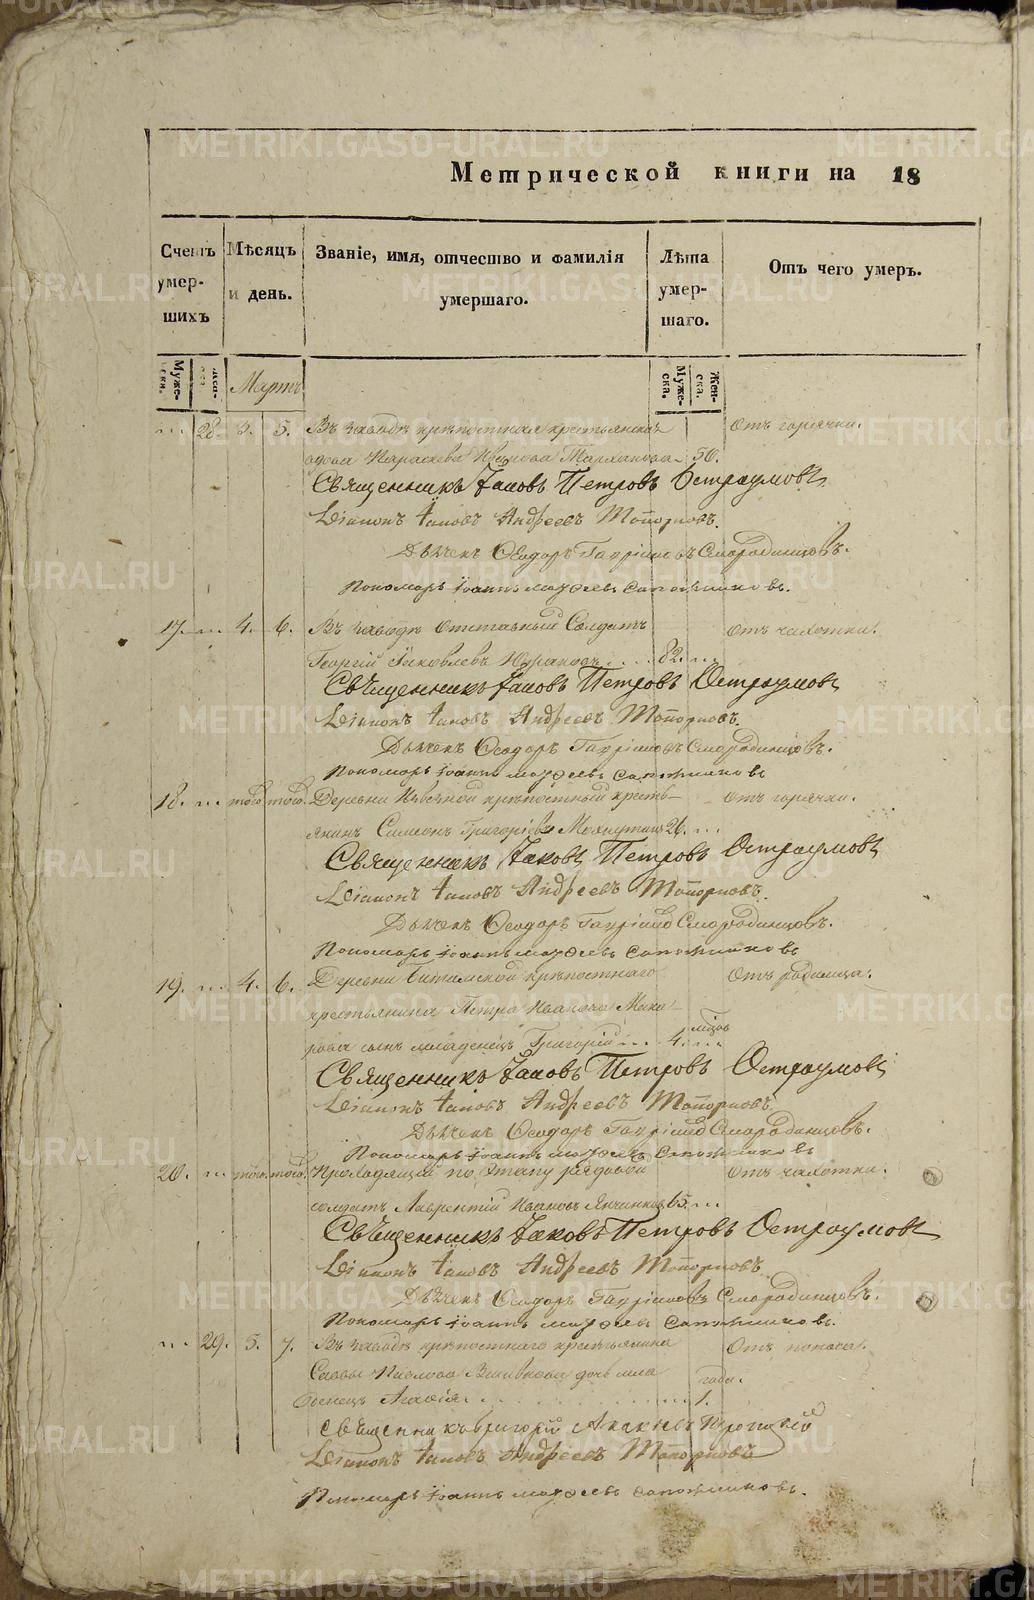 Метрической книги на 18
Счетъ умер- шихъ
Мѣсяцъ и день.
Званіе, имя, отчество и фамилія умершаго.
Лѣта умер- шаго.
Отъ чего умеръ.
Муже- ски.
Жен-
Мартъ
Муже- ска.
Жен- ска.
28. 3. 5. Въ заводѣ крѣпостная крестьянская Отъ горячки.
вдова Параскева Иванова 50.
Священникъ Іаковъ Петровъ Остроумовъ
Діаконъ Іаковъ Андреевъ Топорковъ.
Дьячекъ Ѳеодоръ Гавріиловъ Смородинцовъ.
Пономарь Іоаннъ Матѳеевъ Сапожниковъ.
17. 4. 6. Въ заводѣ Отставный Солдатъ Отъ чахотки.
Георгій Іаковлевъ 82.
Священникъ Іаковъ Петровъ Остроумовъ
Діаконъ Іаковъ Андреевъ Топорковъ.
Дьячекъ Ѳеодоръ Гавріиловъ Смородинцовъ.
Пономарь Іоаннъ Матѳеевъ Сапожниковъ
18. того того. Деревни крѣпостный кресть- Отъ горячки.
янинъ Симеонъ Григоріевъ 26.
Священникъ Іаковъ Петровъ Остроумовъ
Діаконъ Іаковъ Андреевъ Топорковъ.
Дьячекъ Ѳеодоръ Гавріиловъ Смородинцовъ.
Пономарь Іоаннъ Матѳеевъ Сапожниковъ
19. 4. 6. Деревни Битимской крѣпостнаго Отъ родимца.
крестьянина Петра Иванова Мака-
рова сынъ младенецъ Григорій 4. мѣсяцов
Священникъ Іаковъ Петровъ Остроумовъ
Діаконъ Іаковъ Андреевъ Топорковъ.
Дьячекъ Ѳеодоръ Гавріиловъ Смородинцовъ.
Пономарь Іоаннъ Матѳеевъ Сапожниковъ
20. того. того. Проходящій по этапу рядовой Отъ чахотки.
солдатъ Лаврентій Ивановъ 65.
Священникъ Іаковъ Петровъ Остроумовъ
Діаконъ Іаковъ Андреевъ Топорковъ
Дьячекъ Ѳеодоръ Гавріиловъ Смородинцовъ.
Пономарь Іоаннъ Матѳеевъ Сапожниковъ.
29. 5. 7. Въ заводѣ крѣпостнаго крестьянина Отъ поноса.
Саввы Павлова дочь мла- года.
денецъ Агафія 1.
Священникъ Григорій
Діаконъ Іаковъ Андреевъ Топорковъ
Пономарь Іоаннъ Матѳеевъ Сапожниковъ.
METRIKI.GASO-URAL.RU